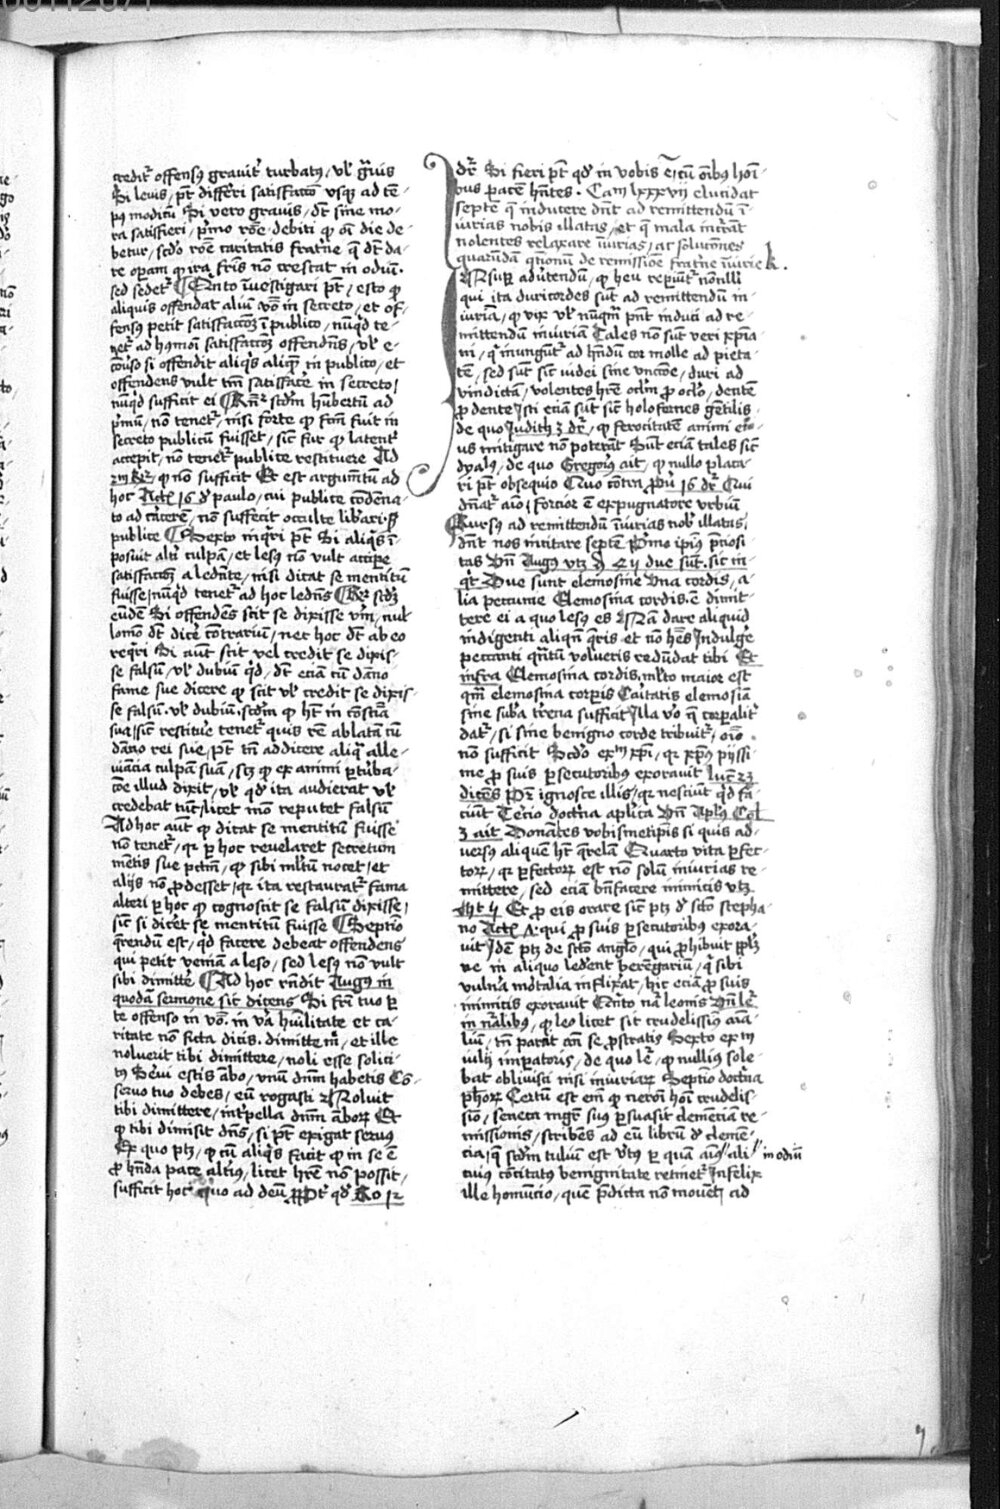 00112071
creditr̄ offensꝯ gravitˀ turbatꝯ / vl̕ gᵃuis
Si leuis / pt̄ differri satisfactō vsqꝫ ad tē-
pꝯ modicū Si vero grauis / dt̄ sine mo-
ra satisfieri / pͥmo rōe debiti qꝛ oī die de-
betur / scdo rōe caritatis frat̄ne q̄ dt̄ da-
re operam qꝫ ira fr̄is nō crescat in odiū.
sed sedetr̄ ¶ Qnto īuestigari pt̄ / esto qꝫ
aliquis offendat aliū vō in secreto / et of-
fensꝯ petit satisfactōꝫ ī publico / nūqd te-
netr̄ ad hꝰmōi satisfactōꝫ offendn̄s / vl̕ e-
cōuso si offendit aliqͥs aliqm̄ in publico / et
offendens vult tm̄ satisfacere in secreto /
nūqd sufficit ei ¶ Rn̄r scdm hubertū ad
pͥmū / nō tenetr̄ / nisi forte qꝫ fcm̄ fuit in
secreto publicū fuisset / sicut fur qꝫ latentˀ
accepit / nō tenetr̄ publice restituere Ad
2m R̄r qꝫ nō sufficit Et est argumtū ad
hoc Actꝫ 16 de paulo / cui publice cōdēna-
to ad carcerē / nō suffecit occulte libᵃri sꝫ
publice ¶ Sexto inqͥri pt̄ Si aliqͥs ī-
posuit altˀi culpā / et lesꝯ nō vult accipe
satisfactōꝫ a ledn̄te / nisi dicat se mentitū
fuisse / nūqd tenetr̄ ad hoc ledn̄s ¶ R̄r scdꝫ
eūdē Si offendēs scit se dixisse vͥm / nul-
lomō dt̄ dicē cōtrariū / nec hoc dt̄ ab eo
reqͥri Si aūt scit vel credit se dixis-
se falsū / vl̕ dubiū qͥd / dt̄ eciā cū dāno
fame sue dicere qꝫ scit vl̕ credit se dixis-
se falsū vl̕ dubiū scdm qꝫ ht̄ in cōsciā
sua / sic̄ restituē tenetr̄ quis rē ablatā cū
dāno rei sue / pt̄ tn̄ addicere aliqͥ alle-
uiācia culpam suā / scꝫ qꝫ ex animi pturba-
cōe illud dixit / vl̕ qꝛ ita audierat vl̕
credebat tūc / licet mō reputet falsū
Ad hoc aūt qꝫ dicat se mentitū fuisse
nō tenetr̄ / qꝛ p hoc reuelaret secretum
mētis sue pctm / qꝫ sibi mltū nocet / et
alijs nō ꝓdesset / qꝛ ita restauratr̄ fama
alteri p hoc qꝫ cognoscit se falsū dixisse /
sic̄ si dicēt se mentitū fuisse ¶ Septīo
q̄rendū est / qͥd facere debeat offendens
qui petit veniā a leso / sed lesꝯ nō vult
sibi dimittē ¶ Ad hoc rn̄dit Augꝯ in
quodā sermone sic dicens Si frī tuo p
te offenso in vō in vᵃ humilitate et ca-
ritate nō ficta dicis dimitte m̄ / et ille
noluerit tibi dimittere / noli esse solici-
tꝯ Serui estis ābo / vnū dnm habetis Cō-
seruo tuo debes / eū rogasti ꝛc Noluit
tibi dimittere / intˀpella dnm āborꝫ Et
qꝫ tibi dimisit dn̄s / si pt̄ exigat seruꝯ
Ex quo ptꝫ / qꝫ cū aliqͥs facit qꝫ in se ē
ꝓ hn̄da pace altˀiꝯ / licet hr̄e nō possit /
sufficit hoc quo ad deū ꝓpt̄ qd Ro 12
dr̄ Si fieri pt̄ qd in vobis ē / cū oībꝯ hōi-
bus pacē hn̄tes. Cam lxxxvij elucidat
septē q̄ inducere dn̄t ad remittendū ī-
iurias nobis illatas / et q̄ mala incˀrāt
nolentes relaxare iiurias / ac solutiones
quarūdā qn̄ionū de remissione fratˀne īiurie k.
RUrsūꝫ aduˀtendū / qꝫ heu repiūtˀ nōnulli
qui ita duricordes sūt ad remittendū in-
iuriā / qꝫ vix vl̕ nūqm̄ pn̄t induci ad re-
mittendū iniuriā Tales nō sunt veri xp̄ia-
ni / qͥ inungūtˀ ad hn̄dū cor molle ad pieta-
tē / sed sūt sic̄ iudei sine vnctione / duri ad
vindictā / volentes hr̄e oclm̄ ꝓ oclo / dentē
ꝓ dente Isti eciā sūt sic̄ holofernes gētilis.
de quo Judith 3 dr̄ / qꝫ ferocitatē animi eiꝯ-
us mitigare nō poterāt Sūt eciā tales sic̄
dyabꝯ / de quo Gregoriꝯ ait / qꝫ nullo placa-
ri pt̄ obsequio Quo cōtra ꝓūͥ 16 dr̄ Qui
dn̄atr̄ aīo / forcior ē expugnatore vrbiū
¶ Rursꝯ ad remittendū iiurias nobˀ illatas /
dn̄t nos incitare septē Pͥmo ipiꝯ pciosi-
tas vn̄ Augꝯ vtꝫ di 45 due sūt. sic in-
qͥt Due sunt elemosine vna cordis / a-
lia peccunie Elemosina cordis ē dimit-
tere ei a quo lesꝯ es Nā dare aliquid
indigenti aliqn̄ q̄ris et nō hēs Indulgē
peccanti qn̄tū volueris redūdat tibi Et
infra Elemosina cordis mlto maior est
qm̄ elemosina corpis Caitatis elemosiā
sine subᵃ tˀrena sufficit Illa vˀo q̄ corpalitˀ
datr̄ / si sine benigno corde tribuitr̄ / oīo
nō sufficit Scdo exm xp̄i / qꝛ xp̄ꝯ pijssi-
me ꝓ suis psecutoribꝯ exorauit luc 23
dicēs Prˀ ignosce illis / qꝛ nesciūt qͥd fa-
ciūt Tercio doctͥna aplica vn̄ Aplꝯ Col
3 ait Donātes vobismetipis si quis ad-
versꝯ aliquē ht̄ q̄relā Quarto vita pfec-
torꝫ / qꝛ pfectorꝫ est nō solū iniurias re-
mittere / sed eciā bn̄facere inimicis vtꝫ
Mt 5 Et ꝓ eis orare sic̄ ptꝫ de scto stepha-
no Actꝫ 7 qui ꝓ suis psecutoribꝯ exora-
uit Idē ptꝫ de scto anglo / qui ꝓhibuit pplꝫ
ne in aliquo lederēt berēgariū / qͥ sibi
vulnᵃ mortalia inflixat / hic eciā ꝓ suis
inimicis exorauit Qnto naᵃ leonis vn̄ lˀr
in nᵃlibꝯ / qꝫ leo licet sit crudelissimꝯ aīa-
liū / tn̄ parcat an̄ se ꝓstratis Sexto exm
iulij impatoris / de quo lr̄ / qꝫ nulliꝯ sole-
bat obliuisci nisi iniuriarꝫ Septīo doctͥna
ph̄orꝫ Certū est em̄ qꝫ nerōi hōi crudelis-
sīo / seneca mgr̄ suꝯ psuasit clemēciā re-
missionis / scribēs ad eū librū de clemē-
cia / q̄ scdm tuliū est vtꝯ p quā aīꝯ // ali // in odiū
cuiꝯ cōcitatꝯ benignitate retinetr̄ Infelix
ille homūcio / quē pdicta nō mouēt / ad